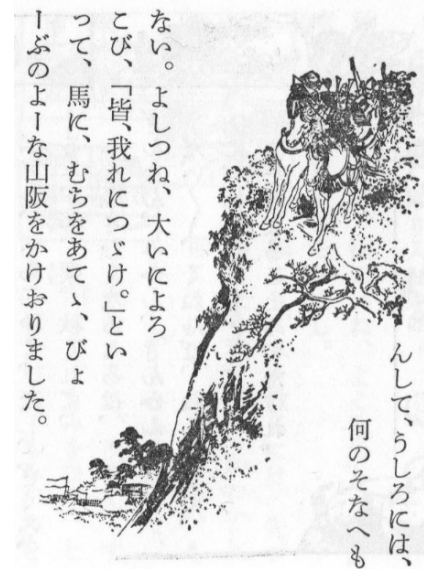 んして、うしろには、
何のそなへも
ない。よしつね、大いによろ
こび、「皆、我れにつゞけ。」とい
って、馬に、むちをあてゝ、びょ
ーぶのよーな山阪をかけおりました。